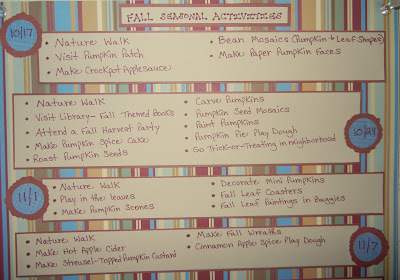 FALL SEASONAL ACTIVITIES
10/17
• Nature Walk
• Visit Pumpkin Patch
• Make Crockpot Applesauce
• Bean Mosaics (Pumpkin & Leaf Shapes)
• Make Paper Pumpkin Faces
• Nature Walk
• Visit Library - Fall Themed Books
• Attend a Fall Harvest Party
• Make Pumpkin Spice Cake
• Roast Pumpkin Seeds
• Carve Pumpkins
• Pumpkin Seed Mosaics
• Paint Pumpkins
• Pumpkin Pier Play Dough
• Go Trick-or-Treating in neighborhood
10/24
11/1
• Nature Walk
• Play in the leaves
• Make Pumpkin Scenes
• Decorate Mini Pumpkins
• Fall Leaf Coasters
• Fall Leaf Paintings in Baggies
• Nature Walk
• Make Hot Apple Cider
• Make Streusel-Topped Pumpkin Custard
• Make Fall Wreaths
• Cinnamon Apple Spice Play Dough
11/7